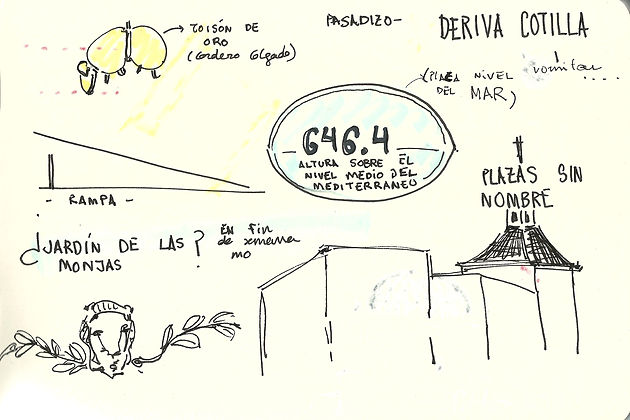 TOISÓN DE
ORO
(Cordero Colgado)
PASADIZO-
DERIVA COTILLA
vomitar....
(PLACA NIVEL
DEL MAR)
646.4
ALTURA SOBRE EL
NIVEL MEDIO DEL
MEDITERRANEO
PLAZAS SIN
NOMBRE
- RAMPA -
¿JARDÍN DE LAS
MONJAS?
EN fin
de semana
no